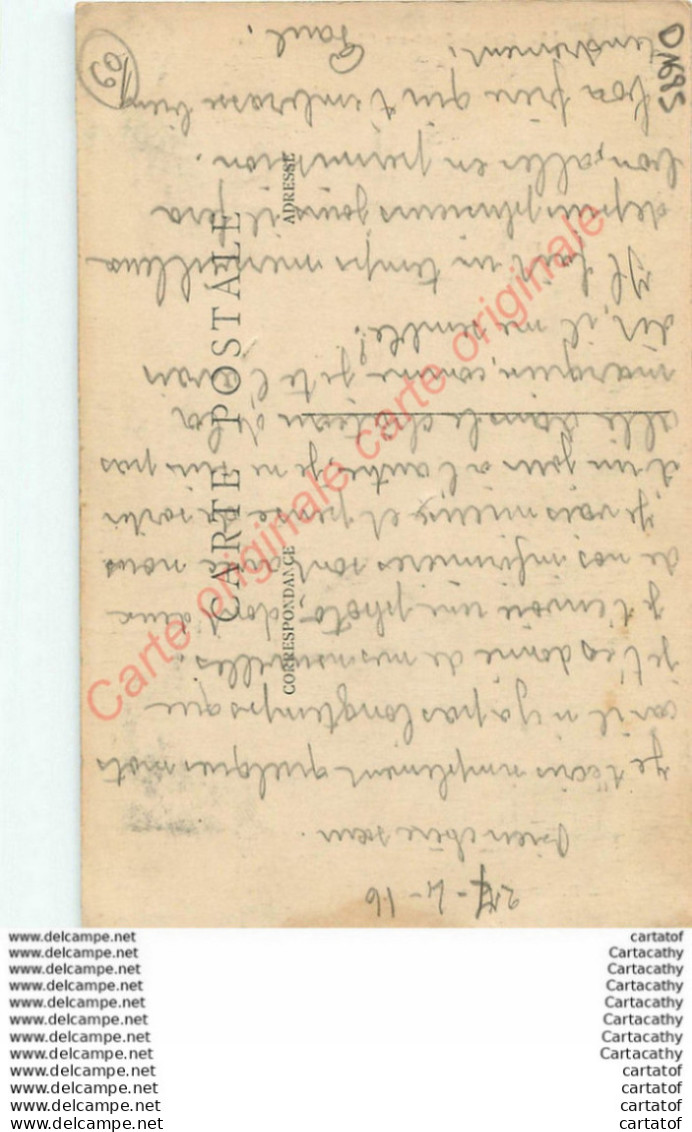 27-4-16
Bien chère sœur
Je t'écris simplement quelques mots
car il n'y a pas longtemps que
je t'ai donné de mes nouvelles.
Je t'envoie une photo, dont deux
de nos infirmières sont avec nous
Je vais mieux et pense à sortir
d'un jour à l'autre, je ne suis pas
allé dans le château de la
marquise, comme je te l'avais
dit, il me semble!
Il fait un temps merveilleux
depuis plusieurs jours il fera
bon, aller en permission.
Ton frère qui t'embrasse bien
tendrement.
Paul.
CARTE POSTALE
CORRESPONDANCE
ADRESSE
DN695
Carte originale carte originale
www.delcampe.net cartatof
www.delcampe.net Cartacathy
www.delcampe.net Cartacathy
www.delcampe.net Cartacathy
www.delcampe.net Cartacathy
www.delcampe.net Cartacathy
www.delcampe.net Cartacathy
www.delcampe.net Cartacathy
www.delcampe.net cartatof
www.delcampe.net cartatof
www.delcampe.net cartatof
www.delcampe.net cartatof